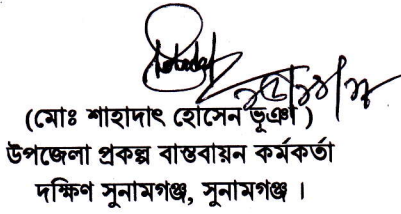 (মোঃ শাহাদাৎ হোসেন ভূঞা)
উপজেলা প্রকল্প বাস্তবায়ন কর্মকর্তা
দক্ষিণ সুনামগঞ্জ, সুনামগঞ্জ ।